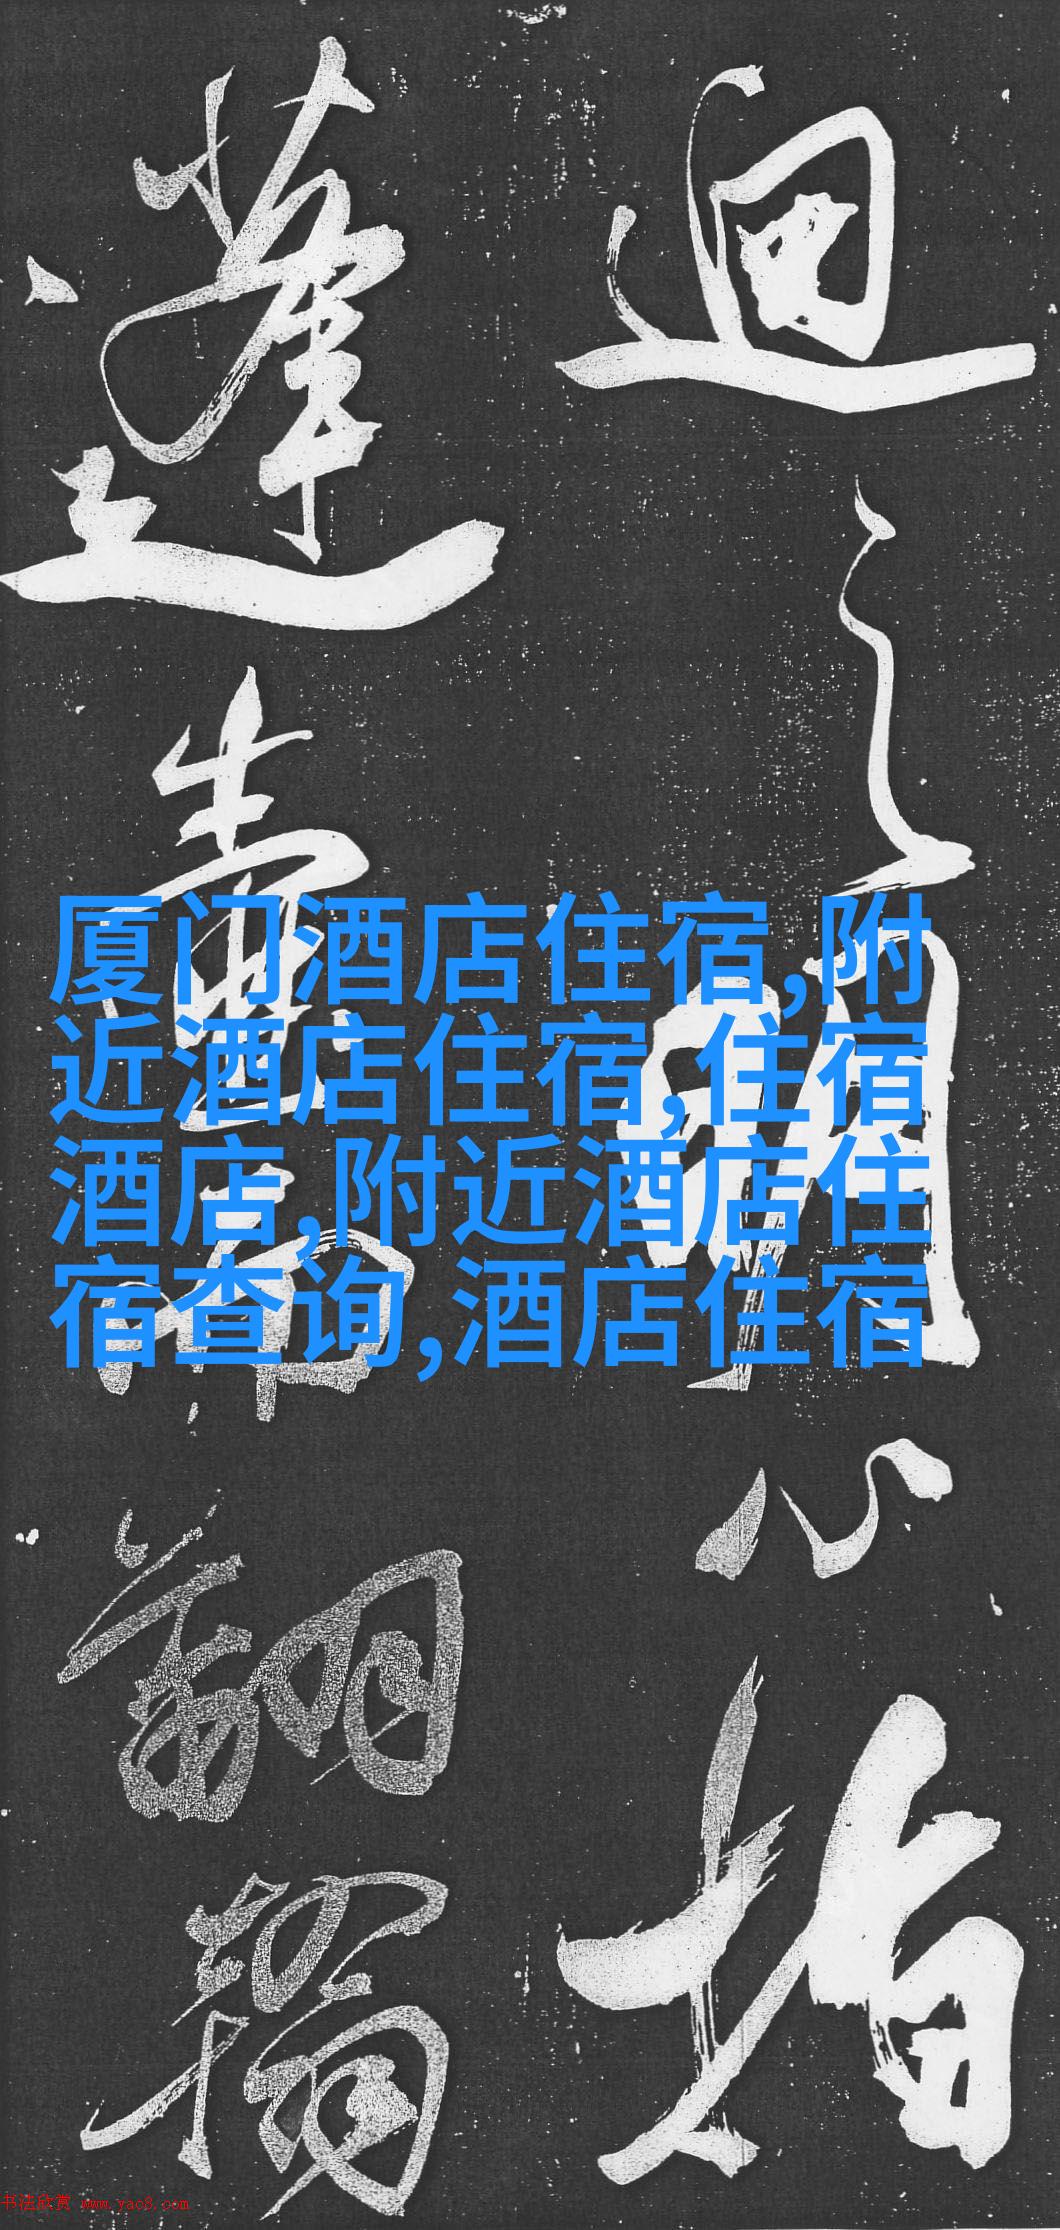 迴之明心指
蓬壺而翻翰
厦门酒店住宿,附
近酒店住宿,住宿
酒店,附近酒店住
宿查询,酒店住宿
书法欣赏 www.yac8.com